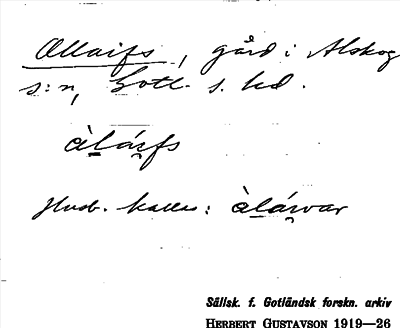 Ollaifs, gård i Alskog
s:n, Gotl. s. hd.
àlái̯fs
Husb. kallas: àlái̯var
Sällsk. f. Gotländsk forskn. arkiv
HERBERT GUSTAVSON 1919—26